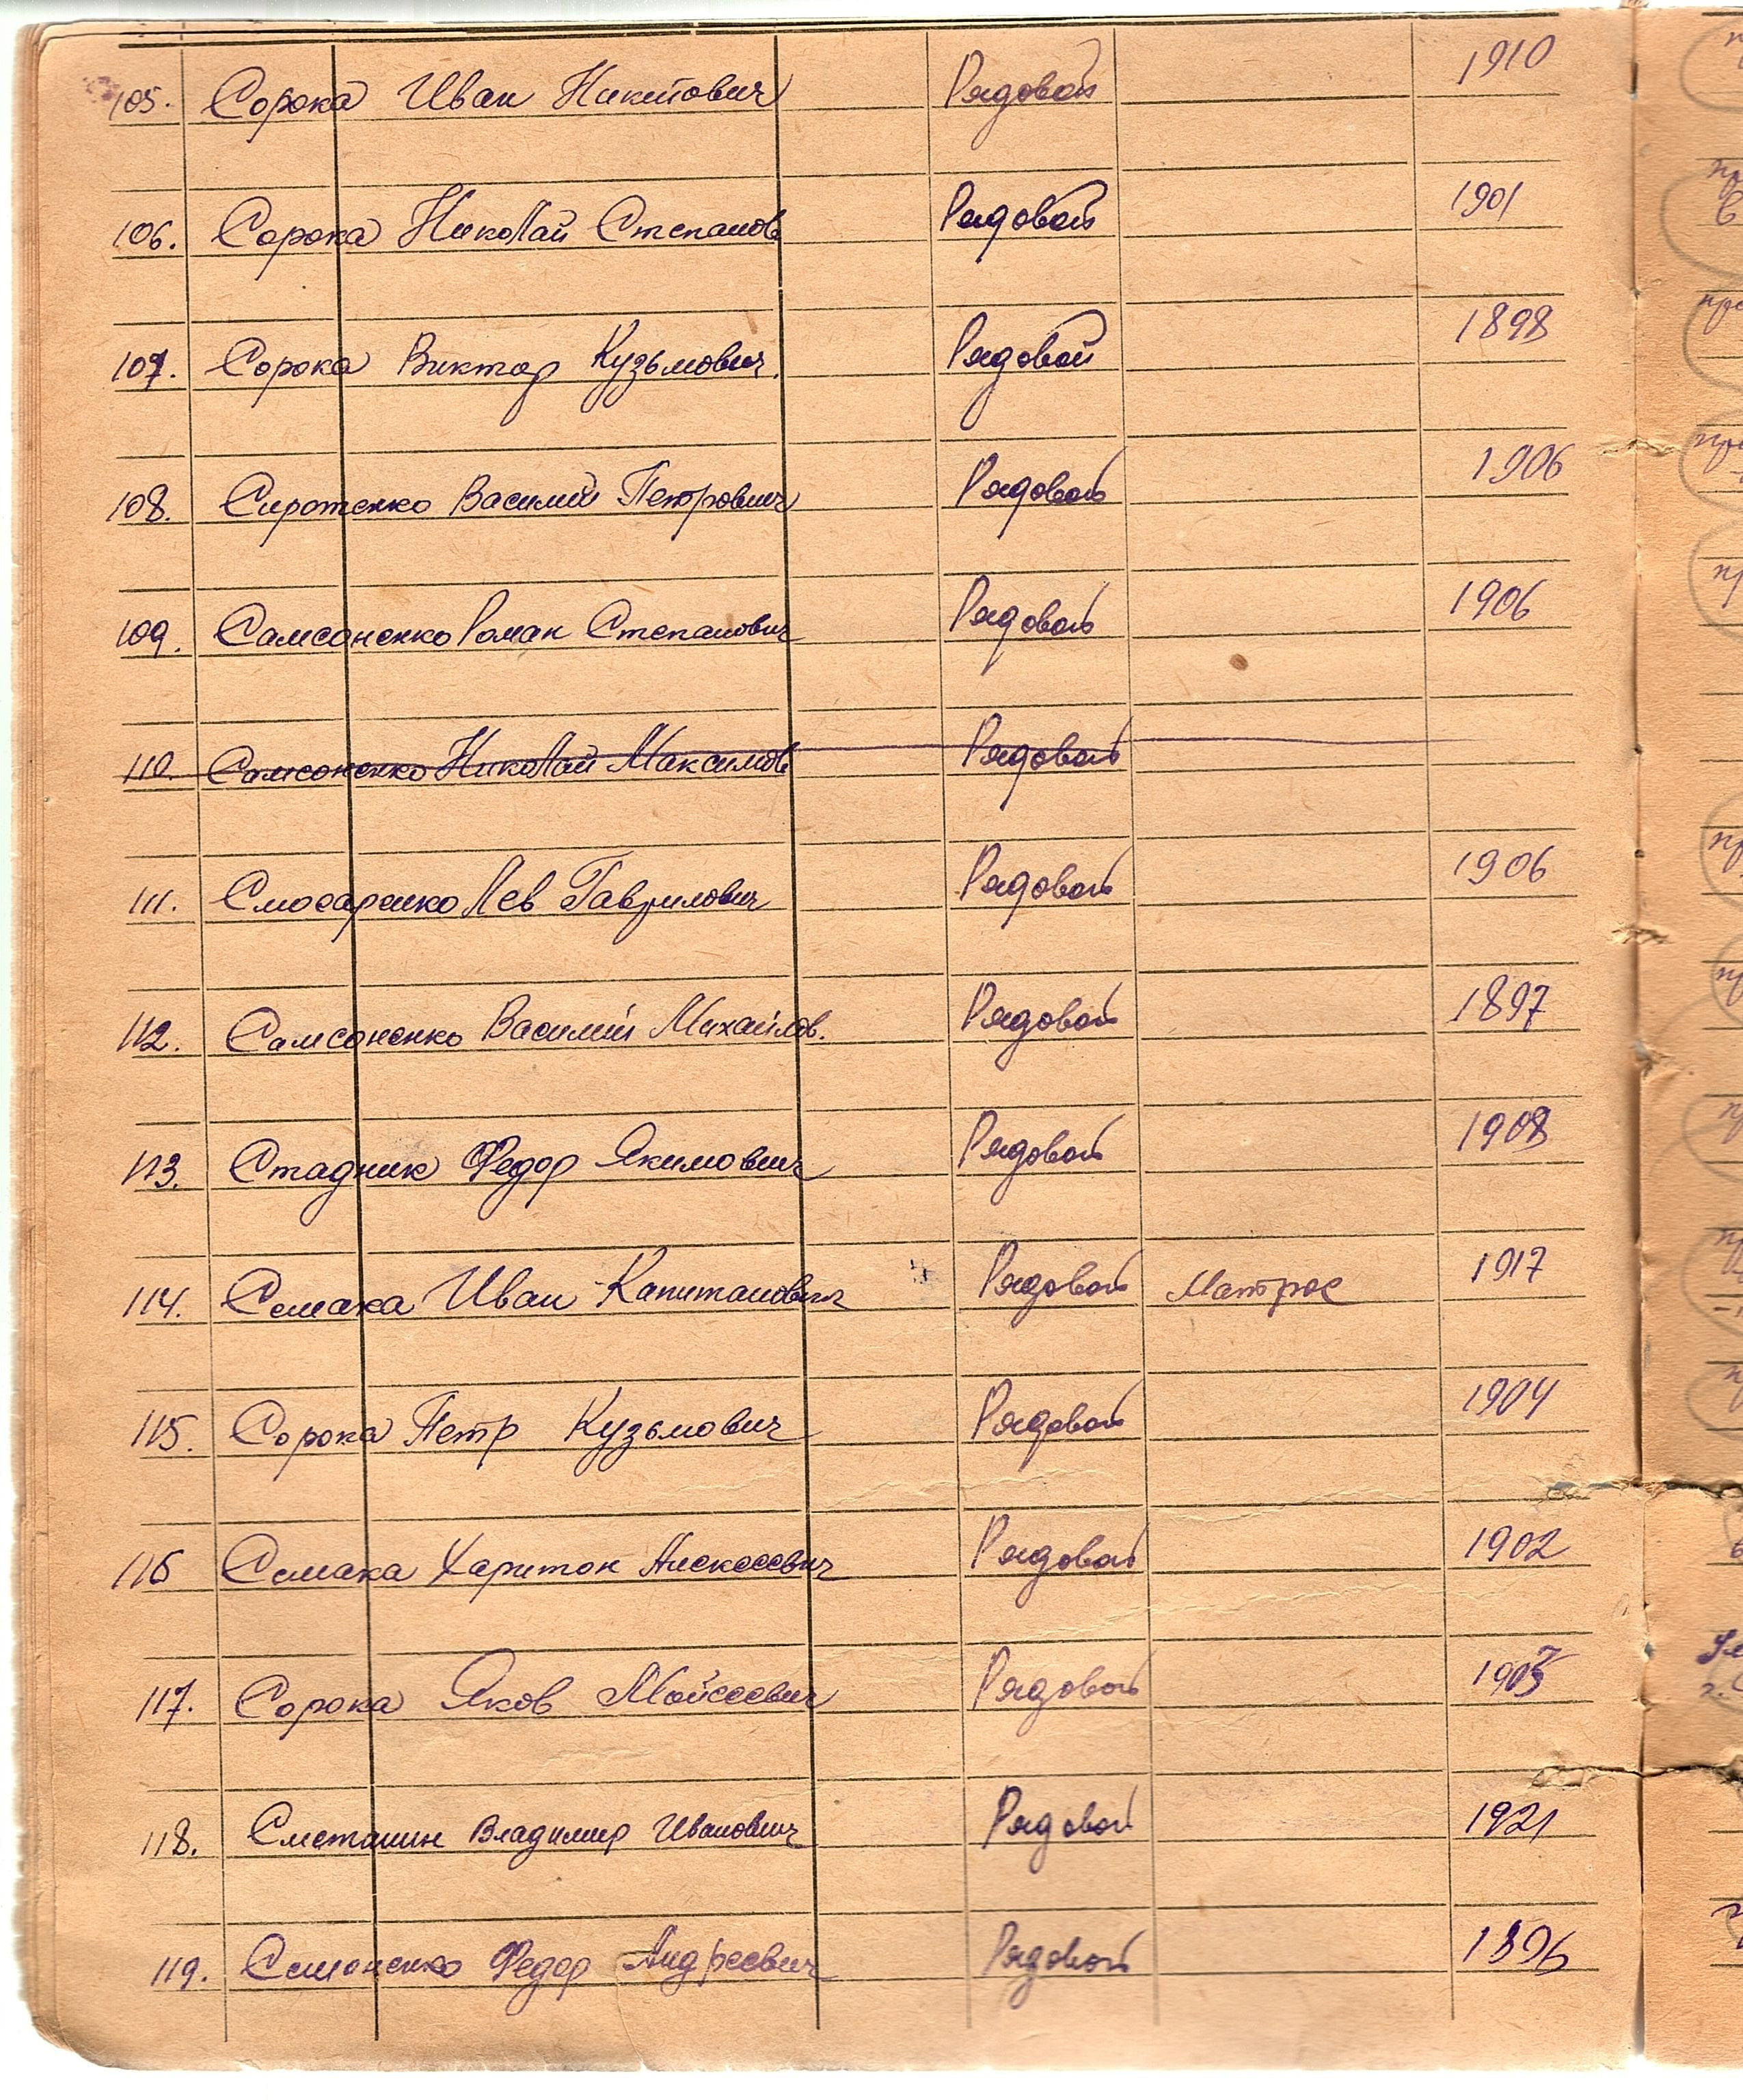 105. Сорока Иван Никитович Рядовой 1910
106. Сорока Николай Степанов Рядовой 1901
107. Сорока Виктор Кузьмович Рядовой 1898
108. Сиротенко Василий Петрович Рядовой 1906
109. Самсоненко Роман Степанович Рядовой 1906
110. Самсоненко Николай Максимов Рядовой
111. Слюсаренко Лев Гаврилович Рядовой 1906
112. Самсоненко Василий Михайлов. Рядовой 1897
113. Стадник Федор Якимович Рядовой 1908
114. Семака Иван Капитанович Рядовой Матрос 1917
115. Сорока Петр Кузьмович Рядовой 1904
116 Семака Харитон Алексеевич Рядовой 1902
117. Сорока Яков Мойсеевич Рядовой
118. Сметанин Владимир Иванович Рядовой 1921
119. Симоненко Федор Андреевич Рядовой 1896